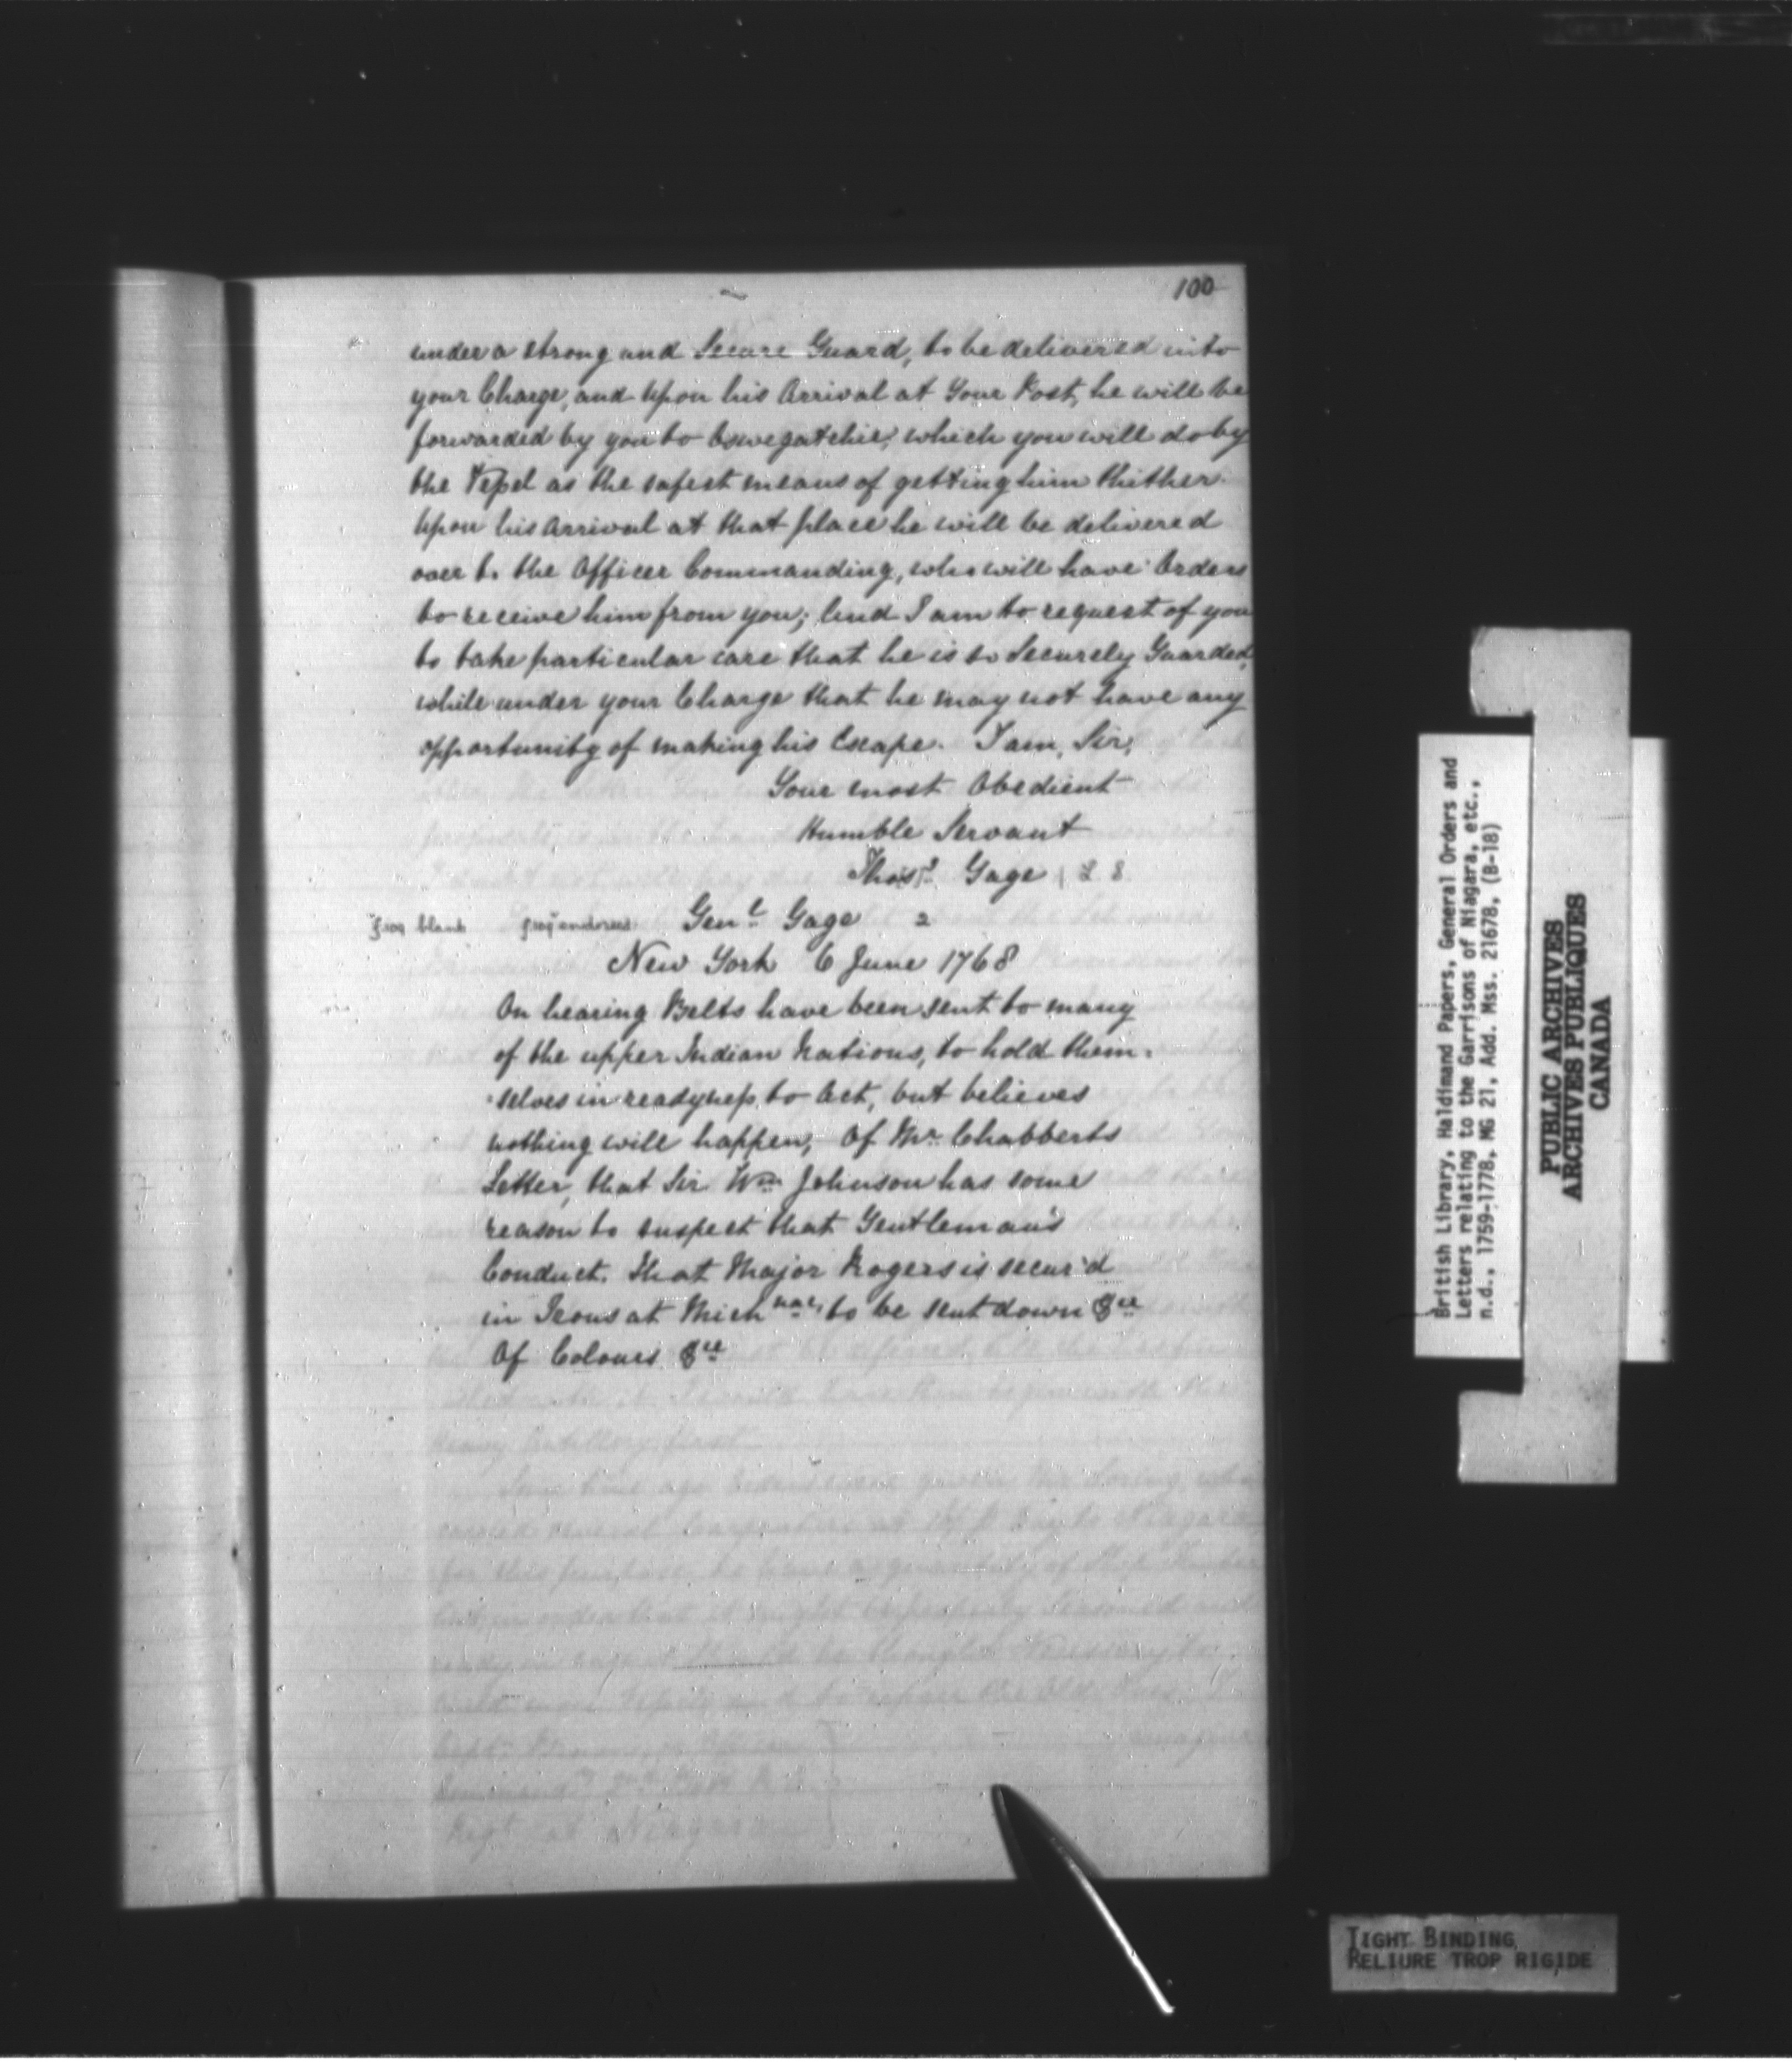 100
under a strong and Secure Guard, to be delivered into
your Charge, and upon his Arrival at Your Post, he will be
forwarded by you to Oswegatchie, which you will do by
the Vessel as the safest means of getting him thither.
Upon his Arrival at that place he will be delivered
over to the Officer Commanding, who will have Orders
to receive him from you; And I am to request of you
to take particular care that he is so Securely Guarded,
while under your Charge that he may not have any
opportunity of making his Escape. I am, Sir,
Your most Obedient
Humble Servant
Thos. Gage
blank endorsed Genl. Gage 2
New York 6 June 1768
On hearing Belts have been sent to many
of the upper Indian Nations, to hold them-
selves in readyness to Act, but believes
nothing will happen, Of Mr. Chabberts
Letter, that Sir Wm. Johnson has some
reason to suspect that Gentleman's
Conduct. That Major Rogers is secur'd
in Irons at Mich to be sent down &ce
Of Colours &ce
British Library, Haldimand Papers, General Orders and
Letters relating to the Garrisons of Niagara, etc.,
n.d., 1759-1778, MG 21, Add. Mss. 21678, (B-18)
PUBLIC ARCHIVES
ARCHIVES PUBLIQUES
CANADA
TIGHT BINDING
RELIURE TROP RIGIDE